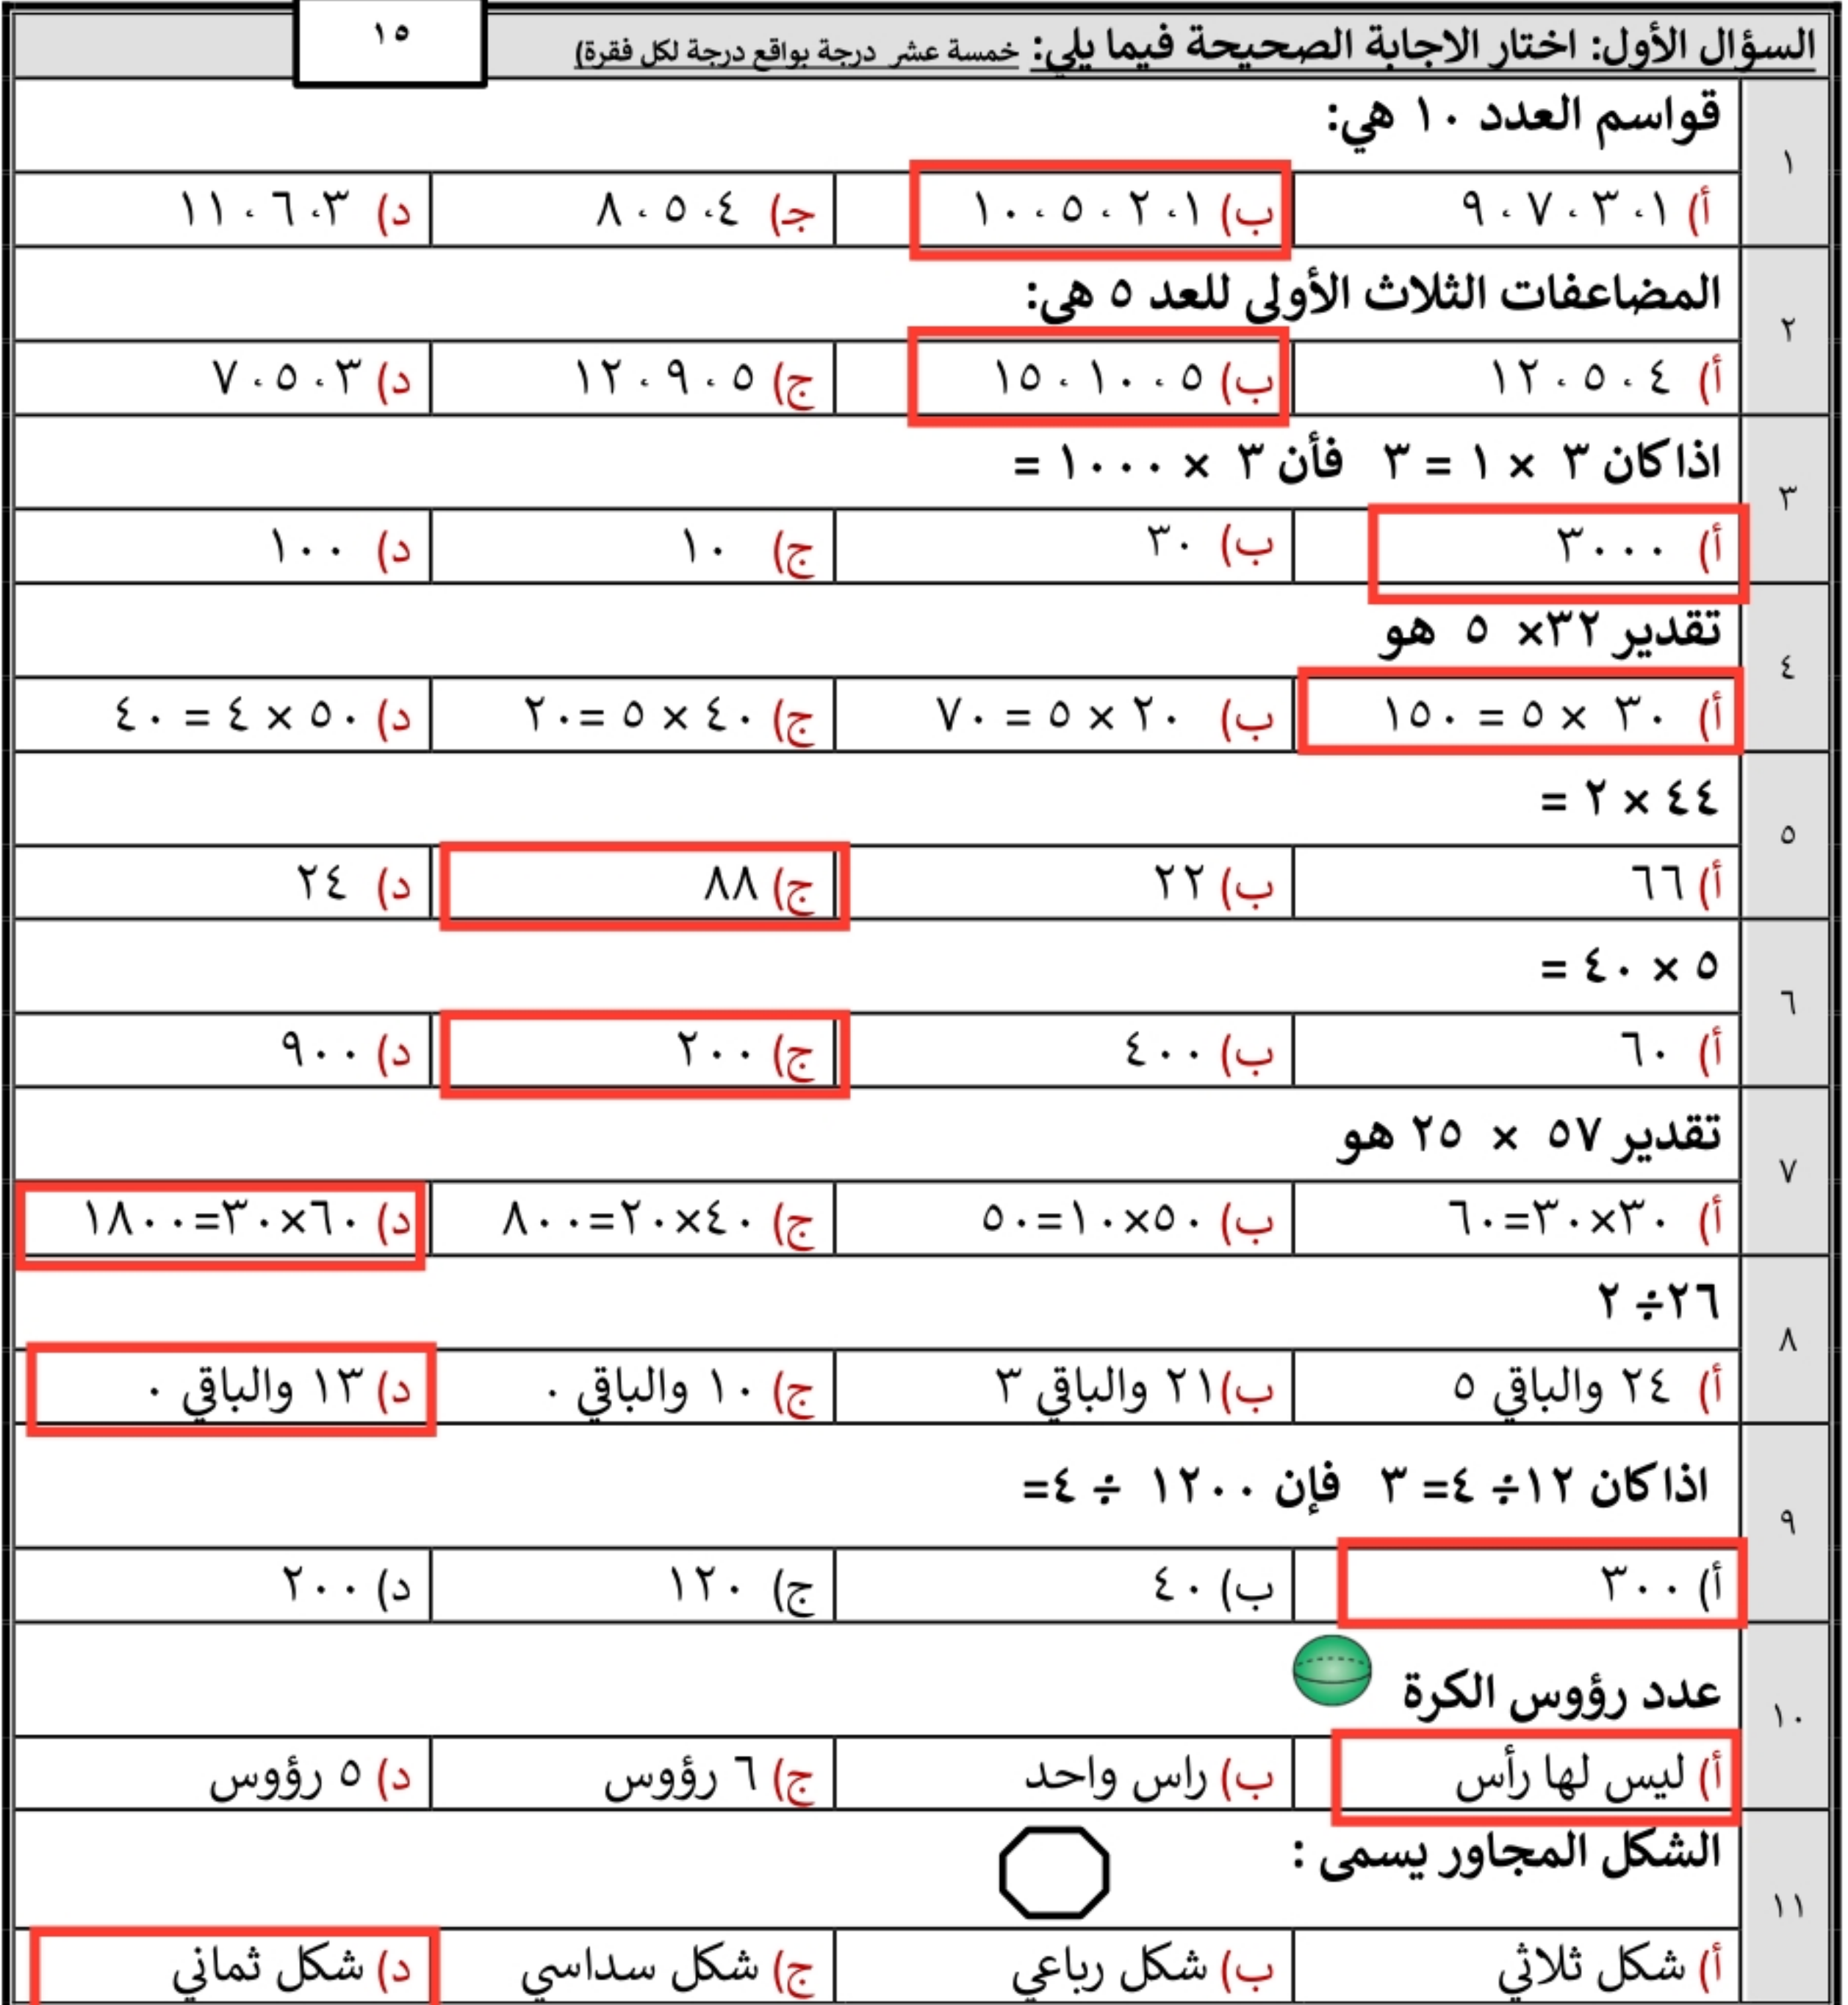 السؤال الأول: اختار الاجابة الصحيحة فيما يلي: خمسة عشر درجة بواقع درجة لكل فقرة)
١٥
١
قواسم العدد ١٠ هي:
أ) ١، ٣ ، ٧ ، ٩
ب) ١، ٢ ، ٥ ، ١٠
جـ) ٤، ٥ ، ٨
د) ٣، ٦ ، ١١
٢
المضاعفات الثلاث الأولى للعد ٥ هى:
أ) ٤ ، ٥ ، ١٢
ب) ٥ ، ١٠ ، ١٥
ج) ٥ ، ٩ ، ١٢
د) ٣ ، ٥ ، ٧
٣
اذا كان ٣ × ١ = ٣ فأن ٣ × ١٠٠٠ =
أ) ٣٠٠٠
ب) ٣٠
ج) ١٠
د) ١٠٠
٤
تقدير ٣٢× ٥ هو
أ) ٣٠ × ٥ = ١٥٠
ب) ٢٠ × ٥ = ٧٠
ج) ٤٠ × ٥ =٢٠
د) ٥٠ × ٤ = ٤٠
٥
٤٤ × ٢ =
أ) ٦٦
ب) ٢٢
ج) ٨٨
د) ٢٤
٦
٥ × ٤٠ =
أ) ٦٠
ب) ٤٠٠
ج) ٢٠٠
د) ٩٠٠
٧
تقدير ٥٧ × ٢٥ هو
أ) ٣٠×٣٠=٦٠
ب) ٥٠×١٠=٥٠
ج) ٤٠×٢٠=٨٠٠
د) ٦٠×٣٠=١٨٠٠
٨
٢٦÷ ٢
أ) ٢٤ والباقي ٥
ب)٢١ والباقي ٣
ج) ١٠ والباقي ٠
د) ١٣ والباقي ٠
٩
اذا كان ١٢÷ ٤= ٣ فإن ١٢٠٠ ÷ ٤=
أ) ٣٠٠
ب) ٤٠
ج) ١٢٠
د) ٢٠٠
١٠
عدد رؤوس الكرة
أ) ليس لها رأس
ب) راس واحد
ج) ٦ رؤوس
د) ٥ رؤوس
١١
الشكل المجاور يسمى :
أ) شكل ثلاثي
ب) شكل رباعي
ج) شكل سداسي
د) شكل ثماني